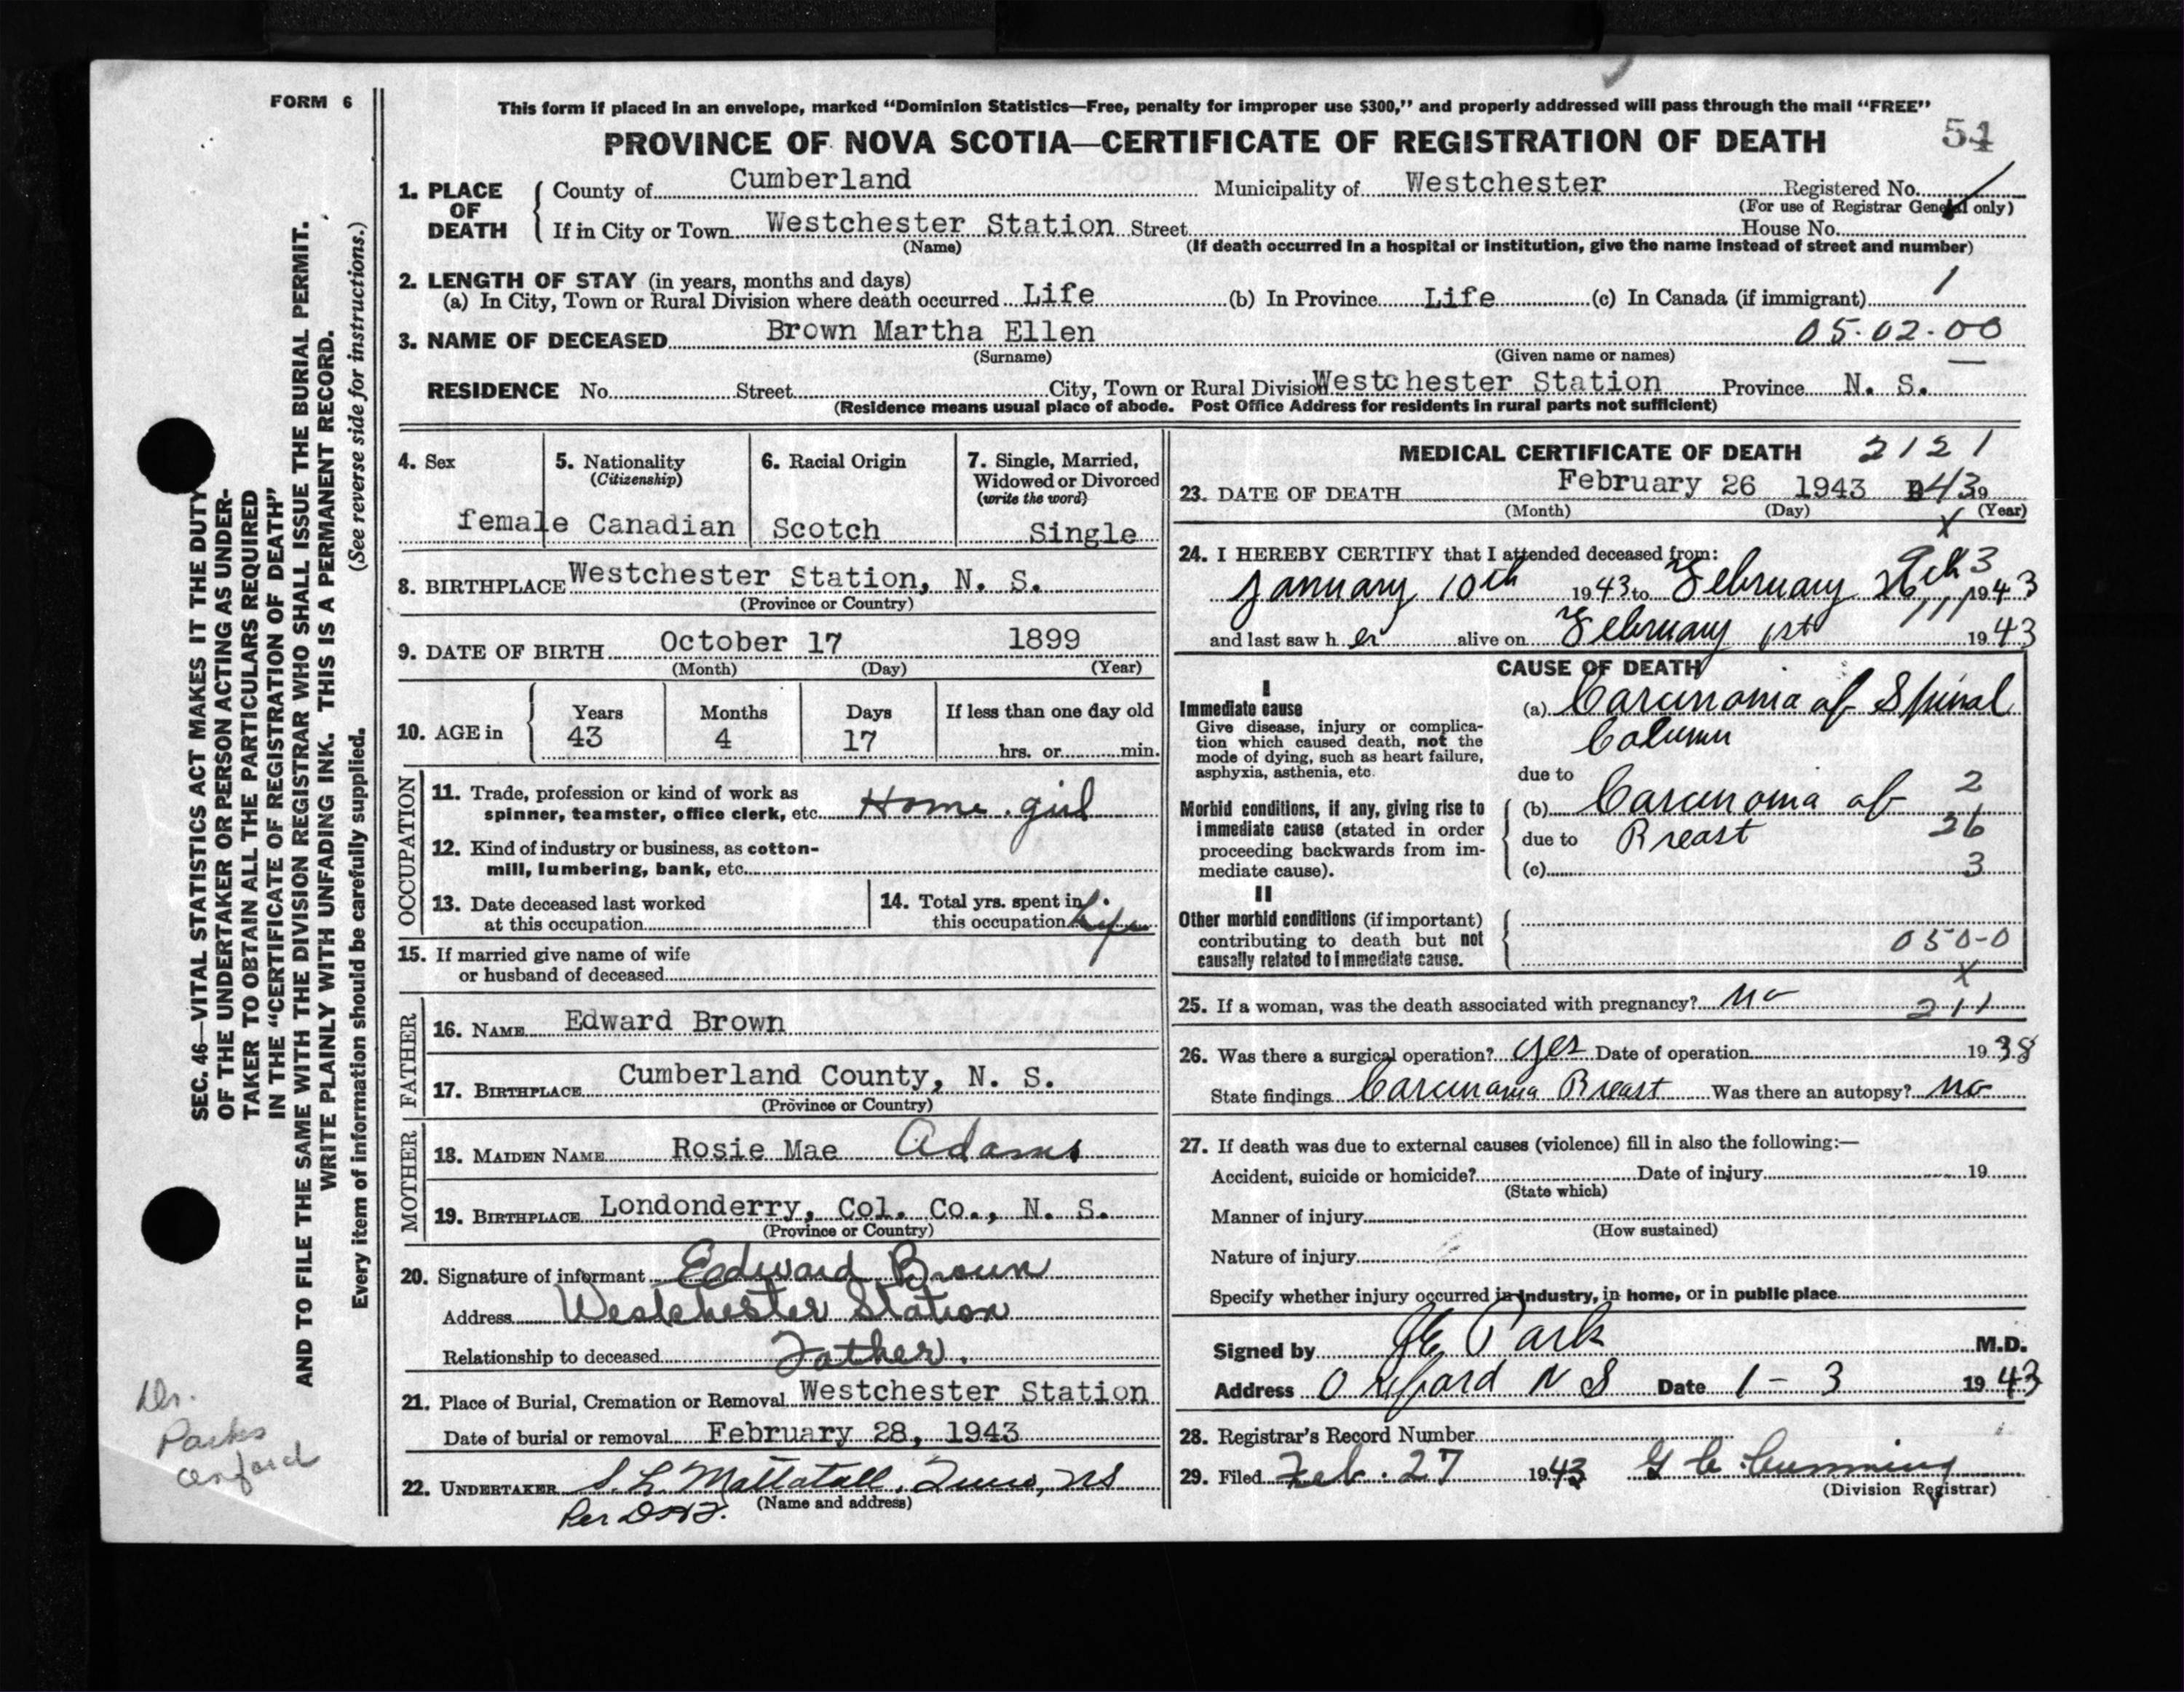 FORM 6
This form if placed in an envelope, marked “Dominion Statistics—Free, penalty for improper use $300,” and properly addressed will pass through the mail “FREE”
PROVINCE OF NOVA SCOTIA—CERTIFICATE OF REGISTRATION OF DEATH
54
1. PLACE OF DEATH
County of Cumberland Municipality of Westchester Registered No.
(For use of Registrar General only)
If in City or Town Westchester Station Street House No.
(Name) (If death occurred in a hospital or institution, give the name instead of street and number)
2. LENGTH OF STAY (in years, months and days) 1
(a) In City, Town or Rural Division where death occurred Life (b) In Province Life (c) In Canada (if immigrant)
3. NAME OF DECEASED Brown Martha Ellen 05-02-00
(Surname) (Given name or names)
RESIDENCE No. Street City, Town or Rural Division Westchester Station Province N. S.
(Residence means usual place of abode. Post Office Address for residents in rural parts not sufficient)
4. Sex
female
5. Nationality
(Citizenship)
Canadian
6. Racial Origin
Scotch
7. Single, Married,
Widowed or Divorced
(write the word)
Single
8. BIRTHPLACE Westchester Station, N. S.
(Province or Country)
9. DATE OF BIRTH October 17 1899
(Month) (Day) (Year)
10. AGE in
Years Months Days If less than one day old
43 4 17 hrs. or min.
OCCUPATION
11. Trade, profession or kind of work as
spinner, teamster, office clerk, etc. Home girl
12. Kind of industry or business, as cotton-
mill, lumbering, bank, etc.
13. Date deceased last worked
at this occupation
14. Total yrs. spent in
this occupation Life
15. If married give name of wife
or husband of deceased
FATHER
16. NAME Edward Brown
17. BIRTHPLACE Cumberland County, N. S.
(Province or Country)
MOTHER
18. MAIDEN NAME Rosie Mae Adams
19. BIRTHPLACE Londonderry, Col. Co., N. S.
(Province or Country)
20. Signature of informant Edward Brown
Address Westchester Station
Relationship to deceased Father.
21. Place of Burial, Cremation or Removal Westchester Station
Date of burial or removal February 28, 1943
22. UNDERTAKER S. L. Mattatall, Truro, NS
(Name and address)
Per
MEDICAL CERTIFICATE OF DEATH 2121
23. DATE OF DEATH February 26 1943 43
(Month) (Day) (Year)
24. I HEREBY CERTIFY that I attended deceased from:
January 10th 1943 to February 26 1943
and last saw her alive on February 1st 1943
CAUSE OF DEATH
I
Immediate cause
Give disease, injury or complica-
tion which caused death, not the
mode of dying, such as heart failure,
asphyxia, asthenia, etc.
(a) Carcinoma of Spinal
Column
due to
Morbid conditions, if any, giving rise to
immediate cause (stated in order
proceeding backwards from im-
mediate cause).
(b) Carcinoma of 2
due to Breast 26
(c) 3
II
Other morbid conditions (if important)
contributing to death but not
causally related to immediate cause.
050-0
X
25. If a woman, was the death associated with pregnancy? no 211
26. Was there a surgical operation? yes Date of operation 1938
State findings Carcinoma Breast Was there an autopsy? no
27. If death was due to external causes (violence) fill in also the following:—
Accident, suicide or homicide? Date of injury 19
(State which)
Manner of injury
(How sustained)
Nature of injury
Specify whether injury occurred in industry, in home, or in public place
Signed by Park M.D.
Address Oxford N S Date 1 - 3 1943
28. Registrar's Record Number
29. Filed Feb. 27 1943 G C Cumming
(Division Registrar)
SEC. 46—VITAL STATISTICS ACT MAKES IT THE DUTY
OF THE UNDERTAKER OR PERSON ACTING AS UNDER-
TAKER TO OBTAIN ALL THE PARTICULARS REQUIRED
IN THE “CERTIFICATE OF REGISTRATION OF DEATH”
AND TO FILE THE SAME WITH THE DIVISION REGISTRAR WHO SHALL ISSUE THE BURIAL PERMIT.
WRITE PLAINLY WITH UNFADING INK. THIS IS A PERMANENT RECORD.
Every item of information should be carefully supplied. (See reverse side for instructions.)
Dr.
Parks
Oxford